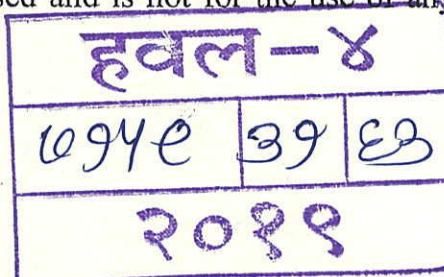 sed and is not for the use of any
हवल-४
७१५९ ३१ ६३
२०१९